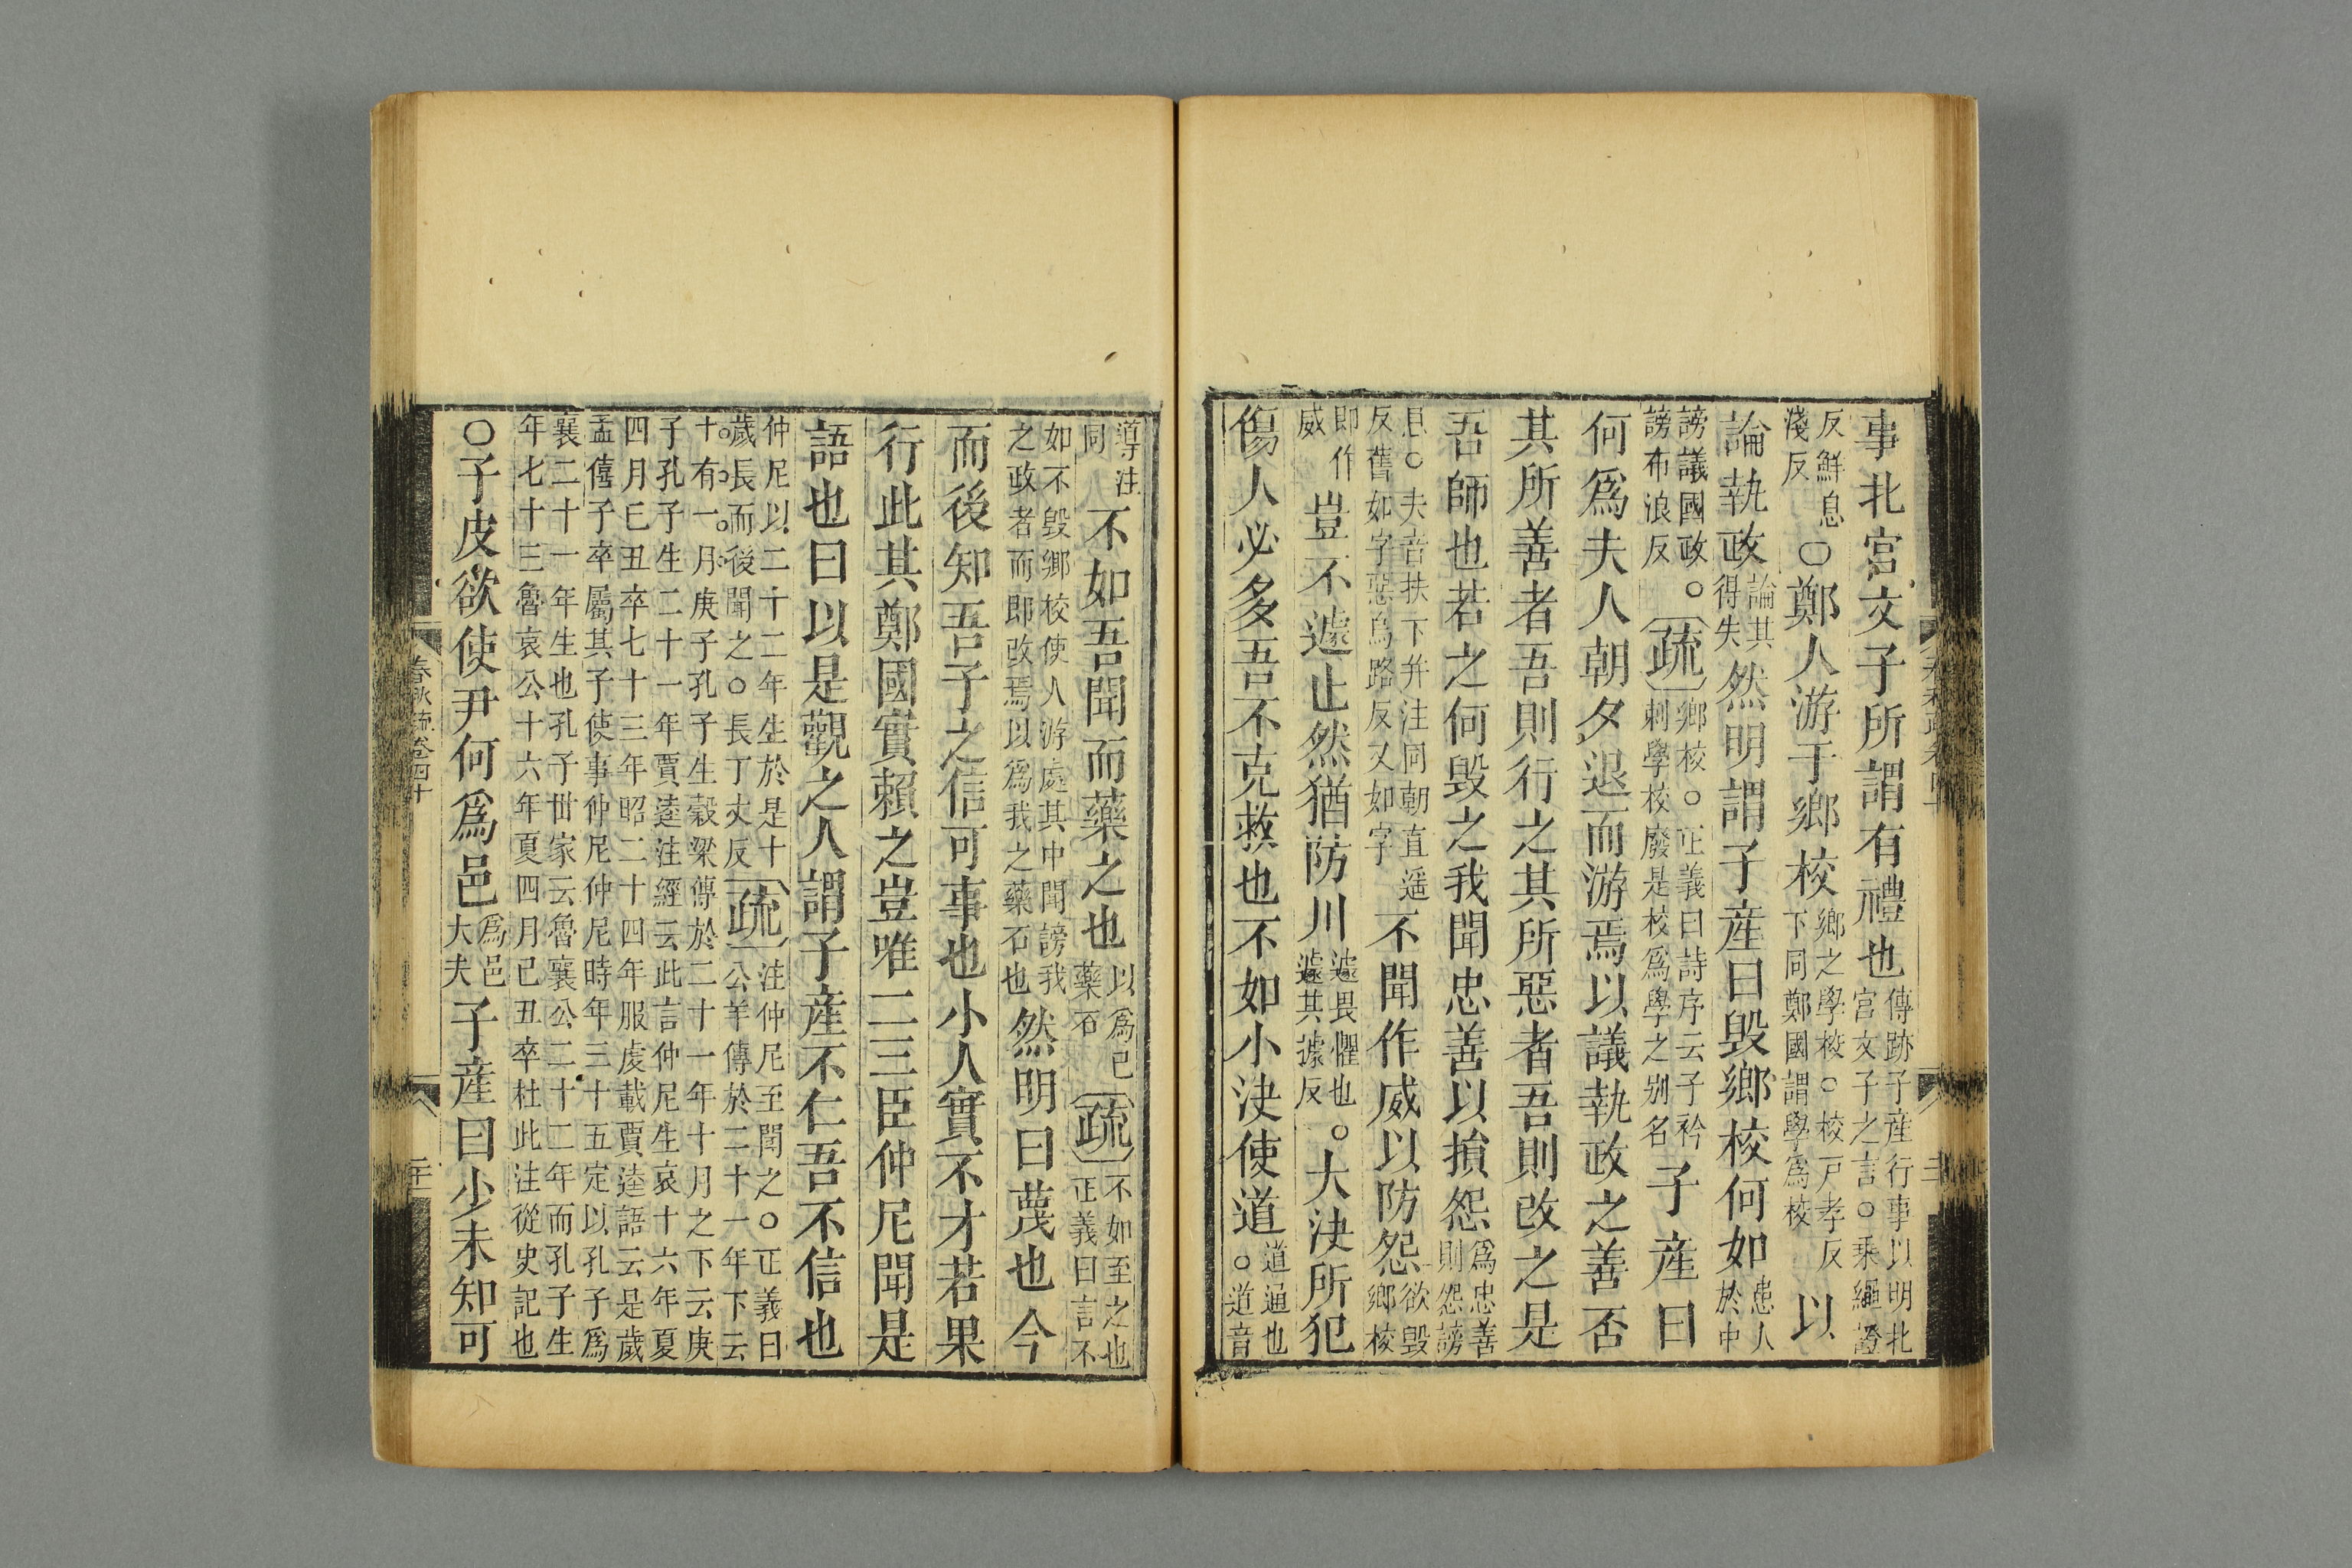 事北宮文子所謂有禮也傳跡子產行事以明北宮文子之言○乘繩證
反鮮息淺反○鄭人游于鄉校鄉之學校○校戸孝反下同鄭國謂學爲校以
論執政論其得失然明謂子產曰毀鄉校何如患人於中
謗議國政○謗布浪反疏鄉校○正義曰詩序云子衿刺學校廢是校爲學之别名子產曰
何爲夫人朝夕退而游焉以議執政之善否
其所善者吾則行之其所惡者吾則改之是
吾師也若之何毀之我聞忠善以損怨爲忠善則怨謗
息○夫音扶下并注同朝直遥反舊如字惡烏路反又如字不聞作威以防怨欲毀鄉校
即作威豈不遽止然猶防川遽畏懼也○遽其據反大決所犯
傷人必多吾不克救也不如小決使道道通也○道音
導注同不如吾聞而藥之也以爲己藥石疏不如至之也正義曰言不
如不毀鄉校使人游處其中聞謗我之政者而即改焉以爲我之藥石也然明曰蔑也今
而後知吾子之信可事也小人實不才若果
行此其鄭國實賴之豈唯二三臣仲尼聞是
語也曰以是觀之人謂子產不仁吾不信也
仲尼以二十二年生於是十歲長而後聞之○長丁丈反疏注仲尼至聞之○正義曰公羊傳於二十一年下云
十有一月庚子孔子生穀梁傳於二十一年十月之下云庚子孔子生二十一年賈逵注經云此言仲尼生哀十六年夏
四月己丑卒七十三年昭二十四年服虔載賈逵語云是歲孟僖子卒屬其子使事仲尼仲尼時年三十五定以孔子爲
襄二十一年生也孔子世家云魯襄公二十二年而孔子生年七十三魯哀公十六年夏四月己丑卒杜此注從史記也
○子皮欲使尹何爲邑爲邑大夫子產曰少未知可
春秋疏卷四十